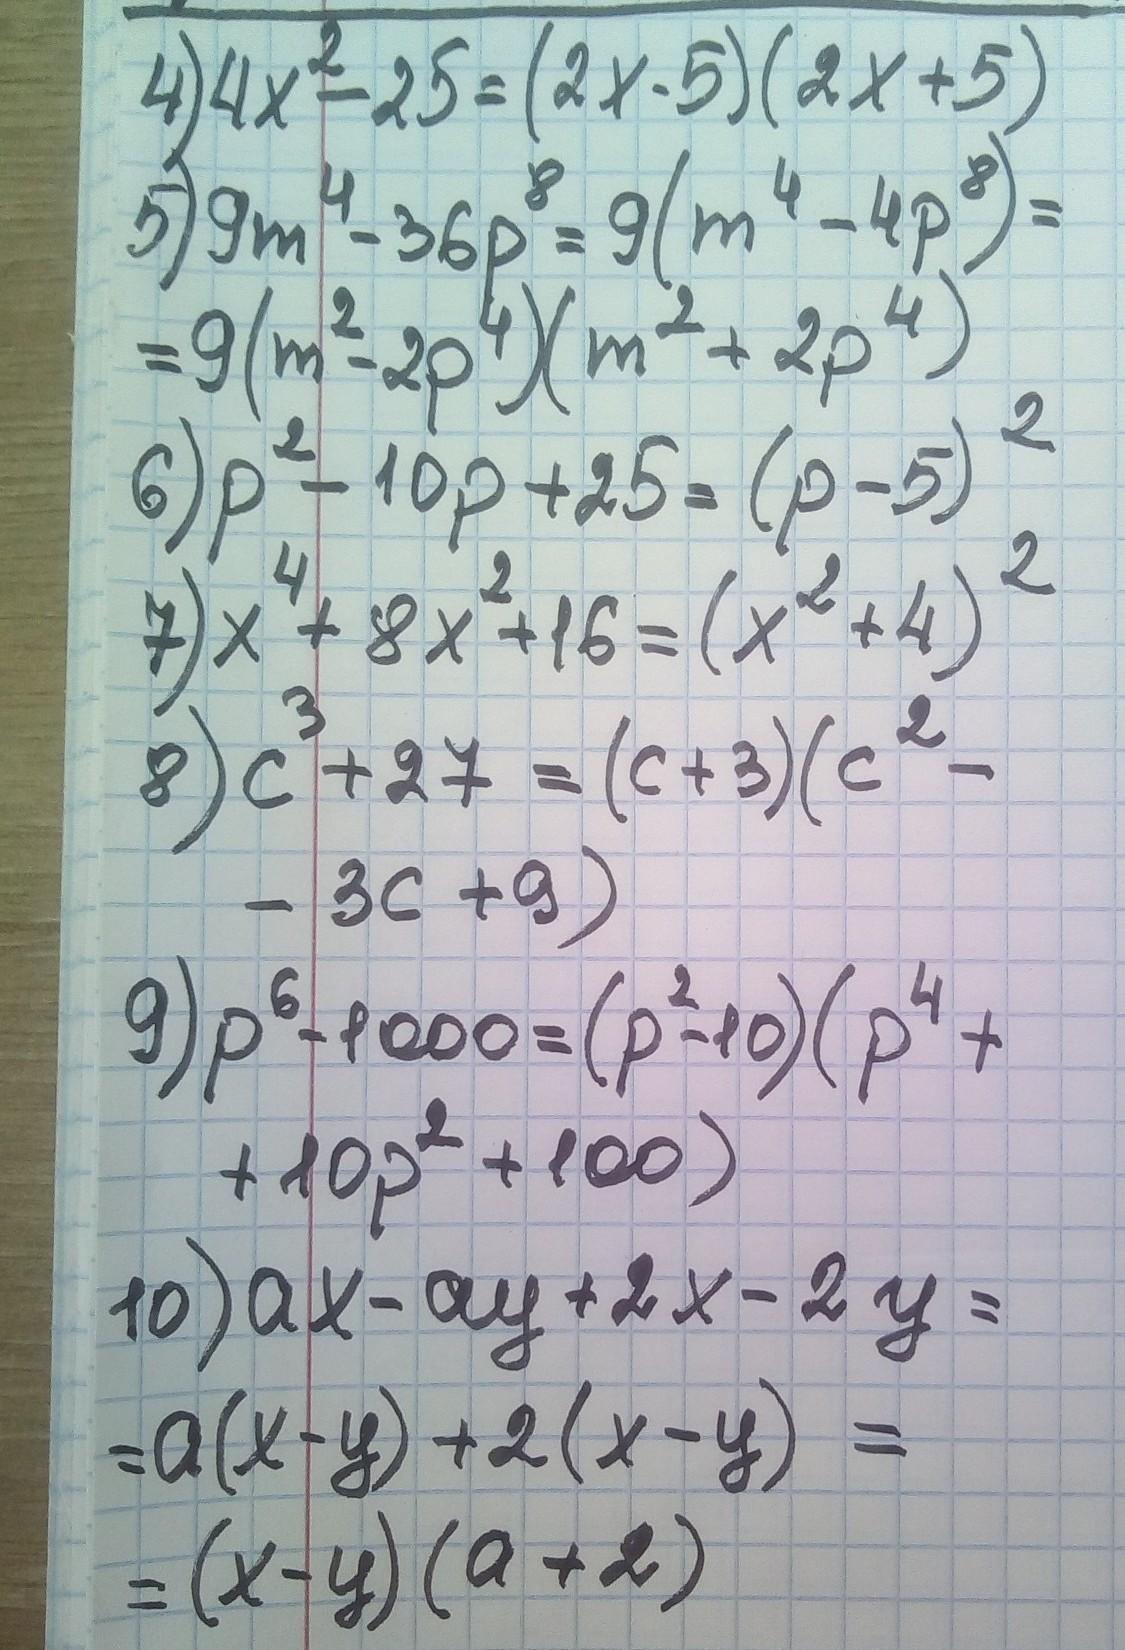 4) 4x² - 25 = (2x - 5)(2x + 5)
5) 9m⁴ - 36p⁸ = 9(m⁴ - 4p⁸) =
= 9(m² - 2p⁴)(m² + 2p⁴)
6) p² - 10p + 25 = (p - 5)²
7) x⁴ + 8x² + 16 = (x² + 4)²
8) c³ + 27 = (c + 3)(c² -
- 3c + 9)
9) p⁶ - 1000 = (p² - 10)(p⁴ +
+ 10p² + 100)
10) ax - ay + 2x - 2y =
= a(x - y) + 2(x - y) =
= (x - y)(a + 2)